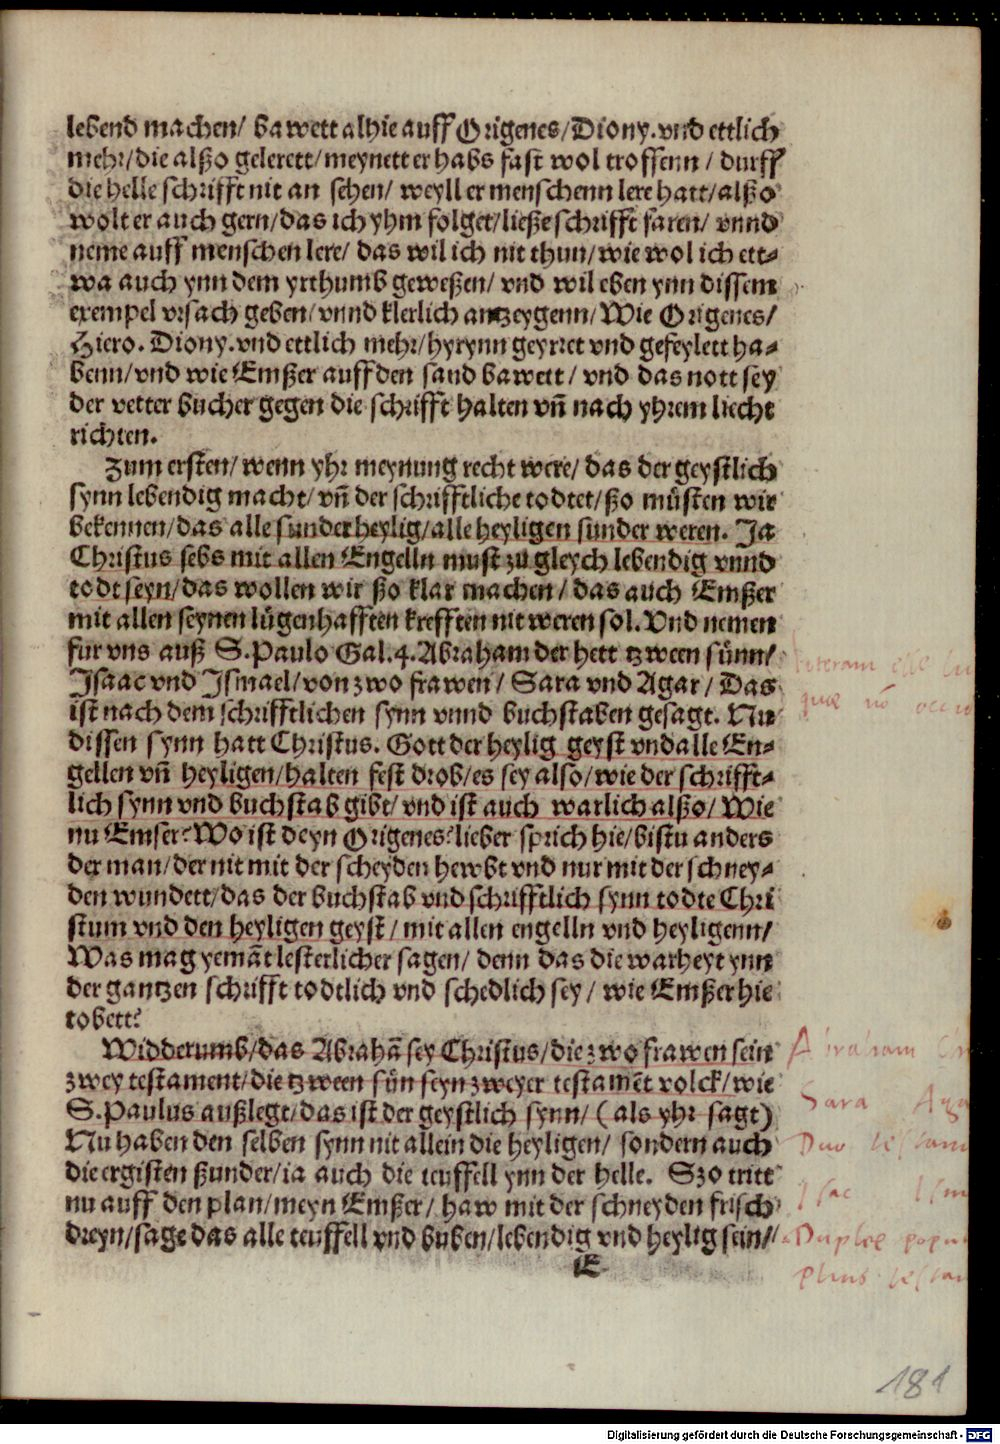 lebend machen/ bawett alhie auff Origenes/Diony.vnd ettlich
mehr/die alßo gelerett/meynett er habs fast wol troffenn/ durff
die helle schrifft nit an sehen/ weyll er menschenn lere hatt/alßo
wolt er auch gern/das ich yhm folget/ließe schrifft faren/ vnnd
neme auff menschen lere/ das wil ich nit thun/wie wol ich ett-
wa auch ynn dem yrthumb geweßen/ vnd wil eben ynn dissem
exempel vrsach geben/vnnd klerlich antzeygenn/Wie Origenes/
Hiero. Diony.vnd ettlich mehr/hyrynn geyrret vnd gefeylett ha-
benn/vnd wie Emßer auff den sand bawett/ vnd das nott sey
der vetter bucher gegen die schrifft halten vñ nach yhrem liecht
richten.
Zum ersten/ wenn yhr meynung recht were/ das der geystlich
synn lebendig macht/ vñ der schrifftliche todtet/ßo müsten wir
bekennen/das alle sunder heylig/alle heyligen sunder weren. Ja
Christus selbs mit allen Engelln must zu gleych lebendig vnnd
todt seyn/das wollen wir ßo klar machen/ das auch Emßer
mit allen seynen lügenhafften krefften nit weren sol.Vnd nemen
fur vns auß S.Paulo Gal.4.Abraham der hett tzween sünn/
Isaac vnd Ismael/von zwo frawen/ Sara vnd Agar/ Das
ist nach dem schrifftlichen synn vnnd buchstaben gesagt. Nu
dissen synn hatt Christus. Gott der heylig geyst vnd alle En-
gellen vñ heyligen/halten fest drob/es sey also/wie der schrifft-
lich synn vnd buchstab gibt/ vnd ist auch warlich alßo/ Wie
nu Emser? Wo ist deyn Origenes? lieber sprich hie/bistu anders
der man/der nit mit der scheyden hewbt vnd nur mit der schney-
den wundett/das der buchstab vnd schrifftlich synn todte Chri
stum vnd den heyligen geyst/ mit allen engelln vnd heyligenn/
Was mag yemãt lesterlicher sagen/ denn das die warheyt ynn
der gantzen schrifft todtlich vnd schedlich sey/ wie Emßer hie
tobett?
Widderumb/das Abrahã sey Christus/die zwo frawen sein
zwey testament/die tzween sün seyn zweyer testamẽt volck/wie
S.Paulus außlegt/das ist der geystlich synn/ (als yhr sagt)
Nu haben den selben synn nit allein die heyligen/ sondern auch
die ergisten ßunder/ia auch die teuffell ynn der helle. Szo tritt
nu auff den plan/meyn Emßer/ haw mit der schneyden frisch
dreyn/sage das alle teuffell vnd buben/lebendig vnd heylig sein/
E
literam esse
quae nõ
Abraham
Sara
Duo
Duplex
181
Digitalisierung gefördert durch die Deutsche Forschungsgemeinschaft - DFG